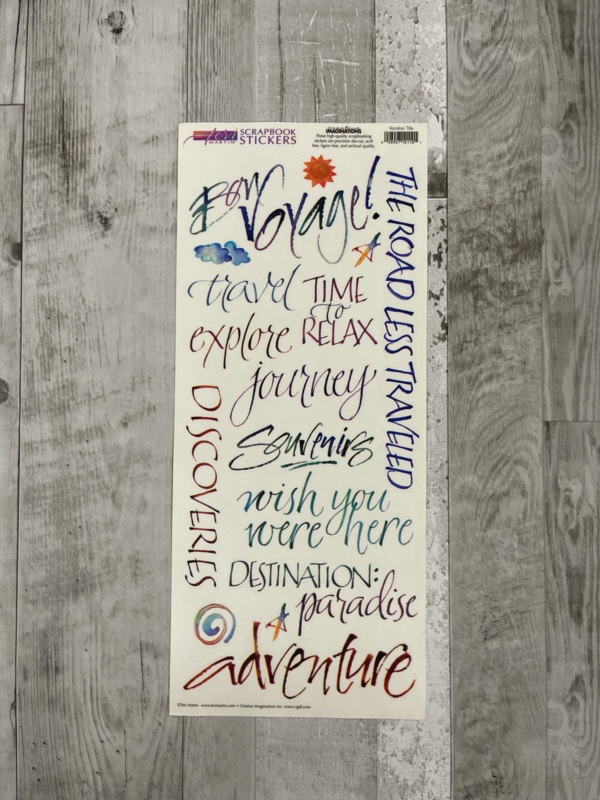 teri
MARTIN
SCRAPBOOK
STICKERS
IMAGINATIONS
These high-quality scrapbooking
stickers are precision die-cut, acid
free, lignin-free, and archival quality
Vacation Title
Bon
Voyage!
THE ROAD LESS TRAVELED
travel
TIME
to
RELAX
explore
journey
DISCOVERIES
Souvenirs
wish you
were here
DESTINATION:
paradise
adventure
©Teri Martin www.terimartin.com • Creative Imaginations Inc. www.cigift.com